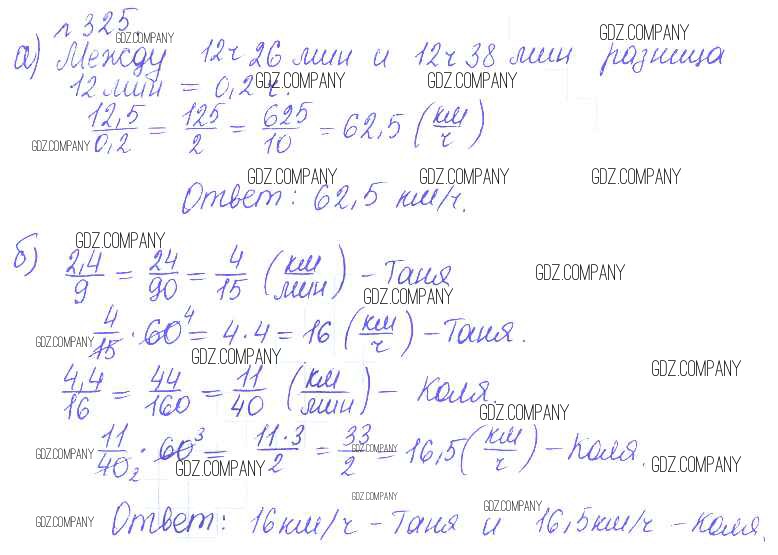 № 325.
GDZ.COMPANY GDZ.COMPANY
а) Между 12ч 26 мин и 12ч 38 мин разница
12 мин = 0,2 ч.
GDZ.COMPANY GDZ.COMPANY
12,5/0,2 = 125/2 = 625/10 = 62,5 (км/ч)
GDZ.COMPANY
GDZ.COMPANY GDZ.COMPANY GDZ.COMPANY
Ответ: 62,5 км/ч.
GDZ.COMPANY
б) 2,4/9 = 24/90 = 4/15 (км/мин) – Таня
GDZ.COMPANY
GDZ.COMPANY
4/15 · 60⁴ = 4 · 4 = 16 (км/ч) – Таня.
GDZ.COMPANY
GDZ.COMPANY
GDZ.COMPANY
4,4/16 = 44/160 = 11/40 (км/мин) – Коля.
GDZ.COMPANY
11/40₂ · 60³ = 11·3/2 = 33/2 = 16,5 (км/ч) – Коля.
GDZ.COMPANY GDZ.COMPANY
GDZ.COMPANY GDZ.COMPANY
GDZ.COMPANY GDZ.COMPANY
Ответ: 16км/ч – Таня и 16,5км/ч – Коля.
GDZ.COMPANY